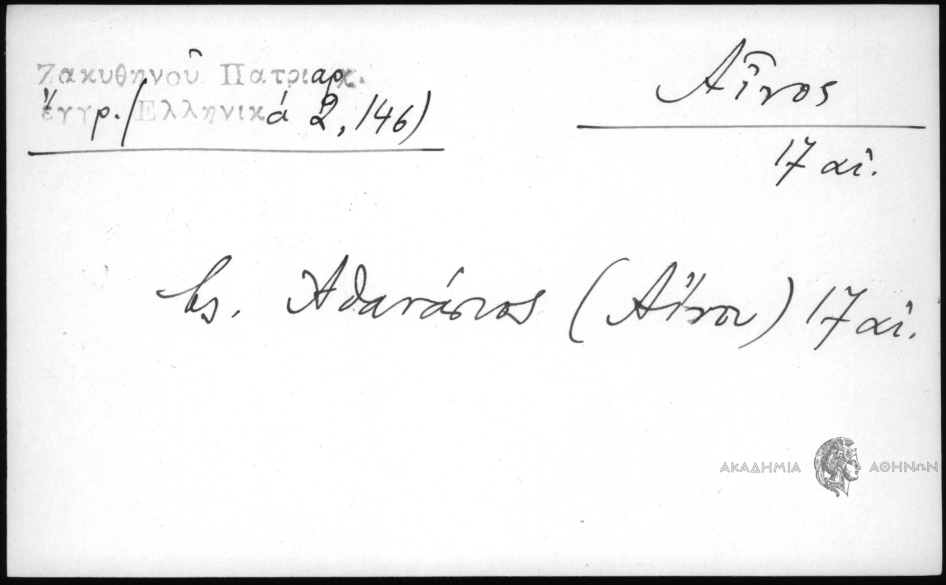 Ζακυθηνοῦ Πατριαρχ.
ἔγγρ. (Ἑλληνικά 2, 146)
Αἶνος
17 αἰ.
Ἀθανάσιος (Αἴνου) 17 αἰ.
ΑΚΑΔΗΜΙΑ ΑΘΗΝΩΝ